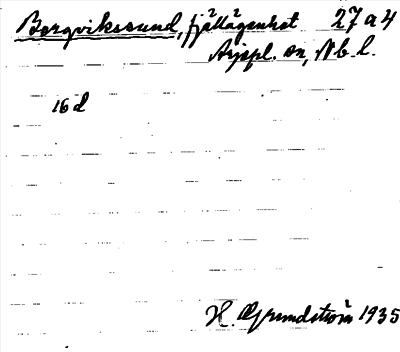 Bergvikssund, fjällägenhet 27 a 4
Arjepl. sn, Nb. l.
16 d
H. Grundström 1935